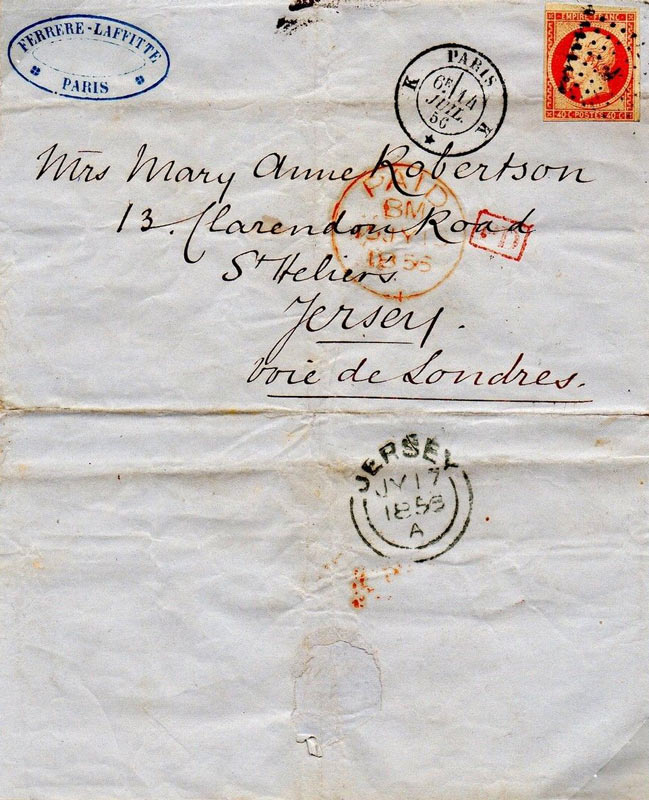 FERRERE-LAFFITTE
PARIS
PARIS
K K
6E 14
JUIL.
56
EMPIRE FRANC
40 C POSTES 40 C
Mrs Mary Anne Robertson
13. Clarendon Road
St Heliers
Jersey.
voie de Londres.
PAID
BM
JY
1856
PD
JERSEY
JY 17
1856
A